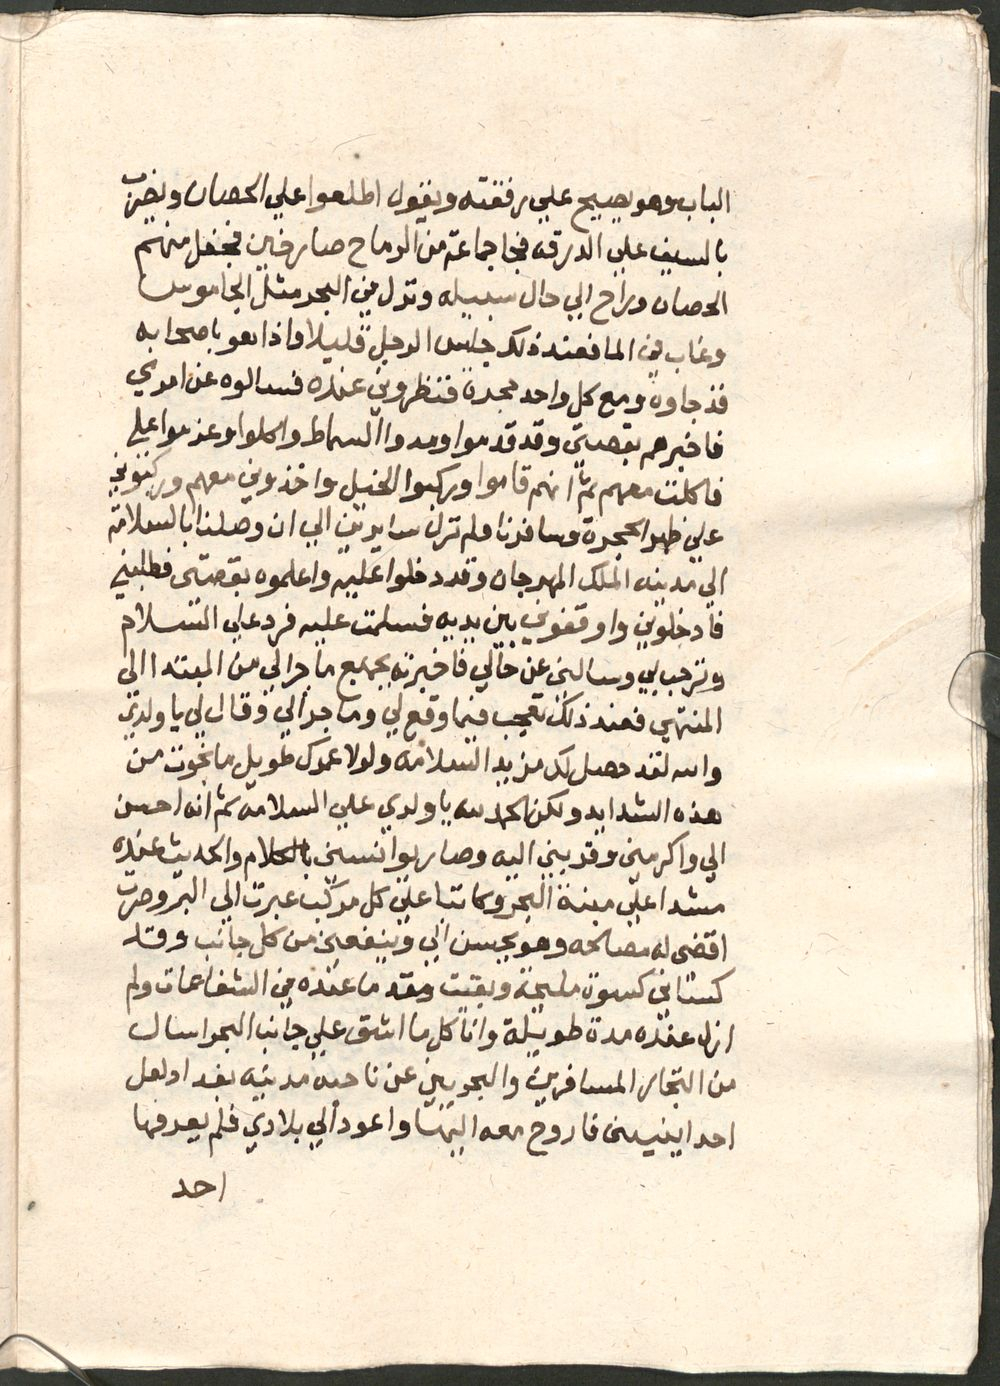 الباب وهو يصيح علي رفقته ويقول اطلعوا علي الحصان ويضرب
بالسيف علي الدرقه فجا جماعة من الرماح صارخين فجفل منهم
الحصان وراح الي حال سبيله ونزل في البحر مثل الجاموس
وغاب في الما فعند ذلك جلس الرجل قليلا واذا هو باصحابه
قد جاوه ومع كل واحد حجرة فنظروني عنده فسالوه عن امري
فاخبرهم بقصتي وقد قدموا ومدوا السماط واكلوا وعزموا علي
فاكلت معهم ثم انهم قاموا وركبوا الخيل واخذوني معهم وركبوني
علي ظهر الحجرة وسافرنا ولم نزل سايرين الي ان وصلنا بالسلامة
الي مدينه الملك المهرجان وقد دخلوا عليه واعلموه بقصتي فطلبني
فادخلوني واوقفوني بين يديه فسلمت عليه فرد علي السلام
وترحب بي وسالني عن حالي فاخبرته بجميع ما جرا لي من المبتدا الي
المنتهي فعند ذلك تعجب فيما وقع لي وما جرا لي وقال لي يا ولدي
والله لقد حصل لك مزيد السلامه ولولا عمرك طويل ما نجوت من
هذه الشدايد ولكن الحمد لله يا ولدي علي السلامه ثم انه احسن
الي واكرمني وقربني اليه وصار يوانسني بالكلام والحديث عنده
مشدا علي مينة البحر وكاتبا علي كل مركب عبرت الي البر وصرت
اقضي له مصالحه وهو يحسن الي وينفعني من كل جانب وقد
كساني كسوة مليحة وبقيت مقدما عنده في الشفاعات ولم
ازل عنده مدة طويلة وانا كل ما اشق علي جانب البحر اسال
من التجار المسافرين والبحريين عن ناحية مدينه بغداد لعل
احدا ينبيني فاروح معه اليها واعود الي بلادي فلم يعرفها
احد